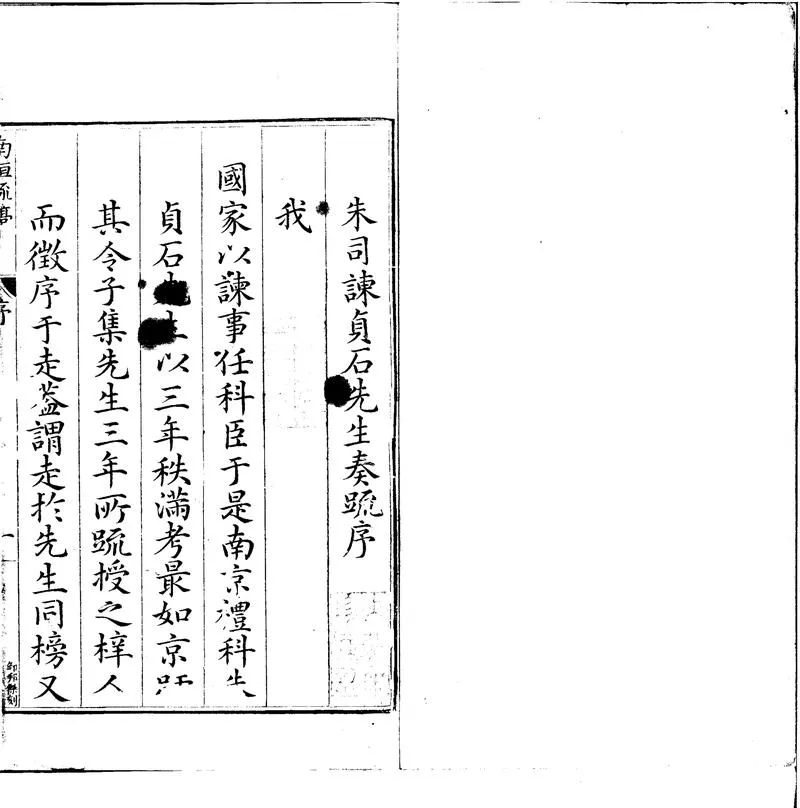 朱司諫貞石先生奏䟽序
我
國家以諫事任科臣于是南京禮科
貞石先生以三年秩滿考最如京師
其令子集先生三年所䟽授之梓人
而徵序于走蓋謂走於先生同榜又
南垣䟽藁
序
一